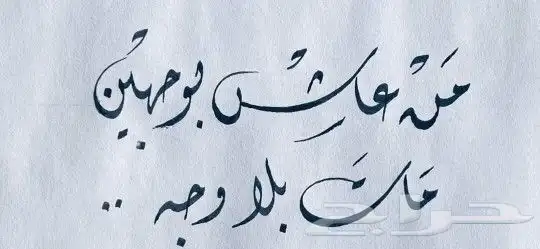 مَنْ عاش بوجهين
مَاتَ بلا وجه ..
حراج